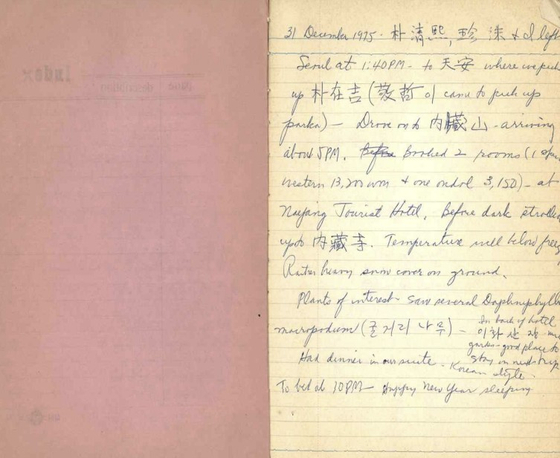 31 December 1975 - 朴清熙, 珍洙 & I left
Seoul at 1:40PM - to 天安 where we pick
up 朴在吉 (敬哲이 came to pick up
parka) - Drove on to 內藏山 - arriving
about 5PM. Before Booked 2 rooms (1
western 13,200 won & one ondol 3,150) - at
Naejang Tourist Hotel. Before dark strolled
up to 內藏寺. Temperature well below free
Rather heavy snow cover on ground.
Plants of interest - saw several Daphniphyllu
macropodum (굴거리 나무) -
In back of hotel
garden - good place to
stay on next trip
Had dinner in our suite - Korean style.
To bed at 10PM - Happy New Year sleeping
Index